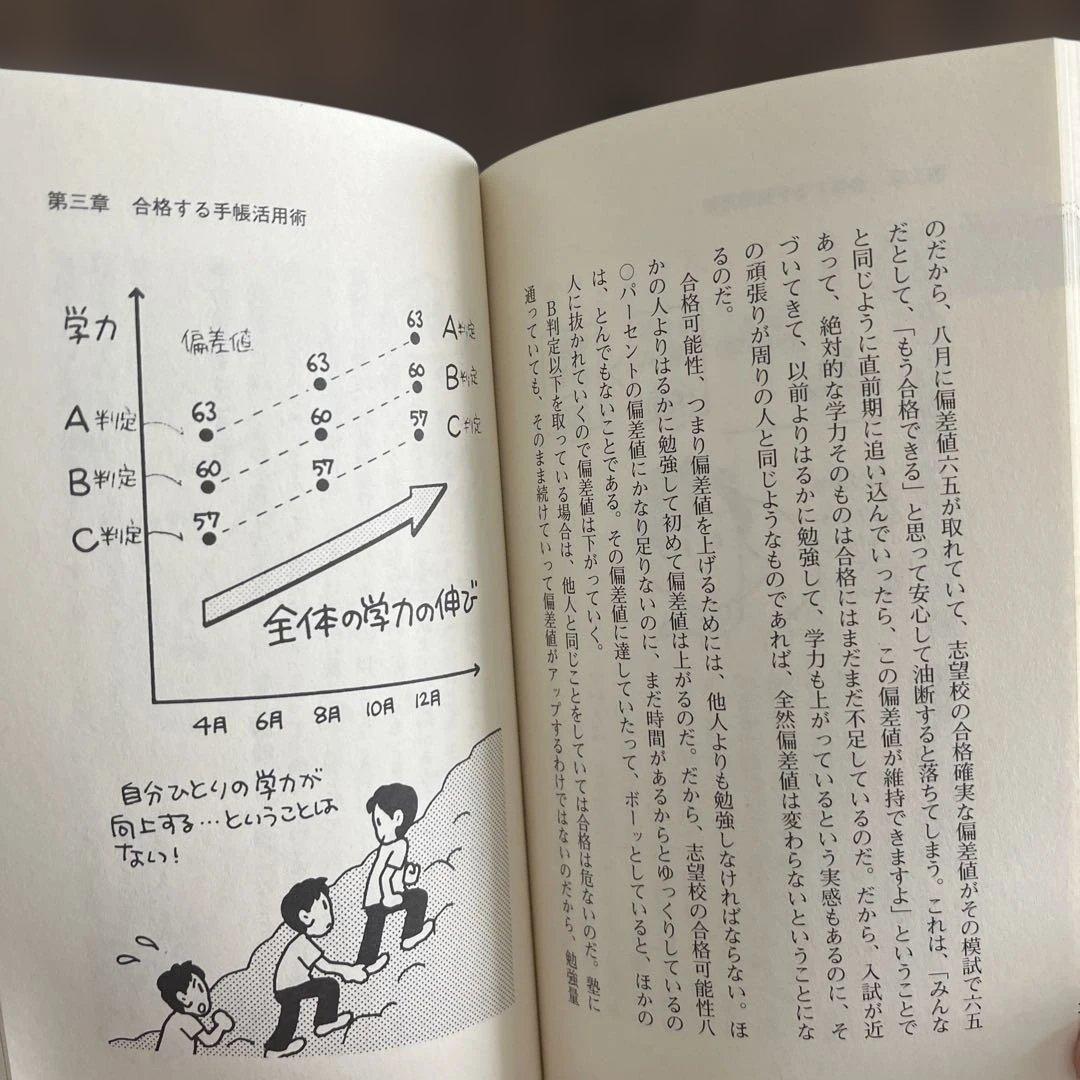 のだから、八月に偏差値六五が取れていて、志望校の合格確実な偏差値がその模試で六五
だとして、「もう合格できる」と思って安心して油断すると落ちてしまう。これは、「みんな
と同じように直前期に追い込んでいったら、この偏差値が維持できますよ」ということで
あって、絶対的な学力そのものは合格にはまだまだ不足しているのだ。だから、入試が近
づいてきて、以前よりはるかに勉強して、学力も上がっているという実感もあるのに、そ
の頑張りが周りの人と同じようなものであれば、全然偏差値は変わらないということにな
るのだ。
合格可能性、つまり偏差値を上げるためには、他人よりも勉強しなければならない。ほ
かの人よりはるかに勉強して初めて偏差値は上がるのだ。だから、志望校の合格可能性八
〇パーセントの偏差値にかなり足りないのに、まだ時間があるからとゆっくりしているの
は、とんでもないことである。その偏差値に達していたって、ボーッとしていると、ほかの
人に抜かれていくので偏差値は下がっていく。
B判定以下を取っている場合は、他人と同じことをしていては合格は危ないのだ。塾に
通っていても、そのまま続けていって偏差値がアップするわけではないのだから、勉強量
第三章 合格する手帳活用術
学力
偏差値
63 A判定
63
60 B判定
A判定 63
60
57 C判定
B判定 60
57
C判定 57
全体の学力の伸び
4月 6月 8月 10月 12月
自分ひとりの学力が
向上する…ということは
ない!